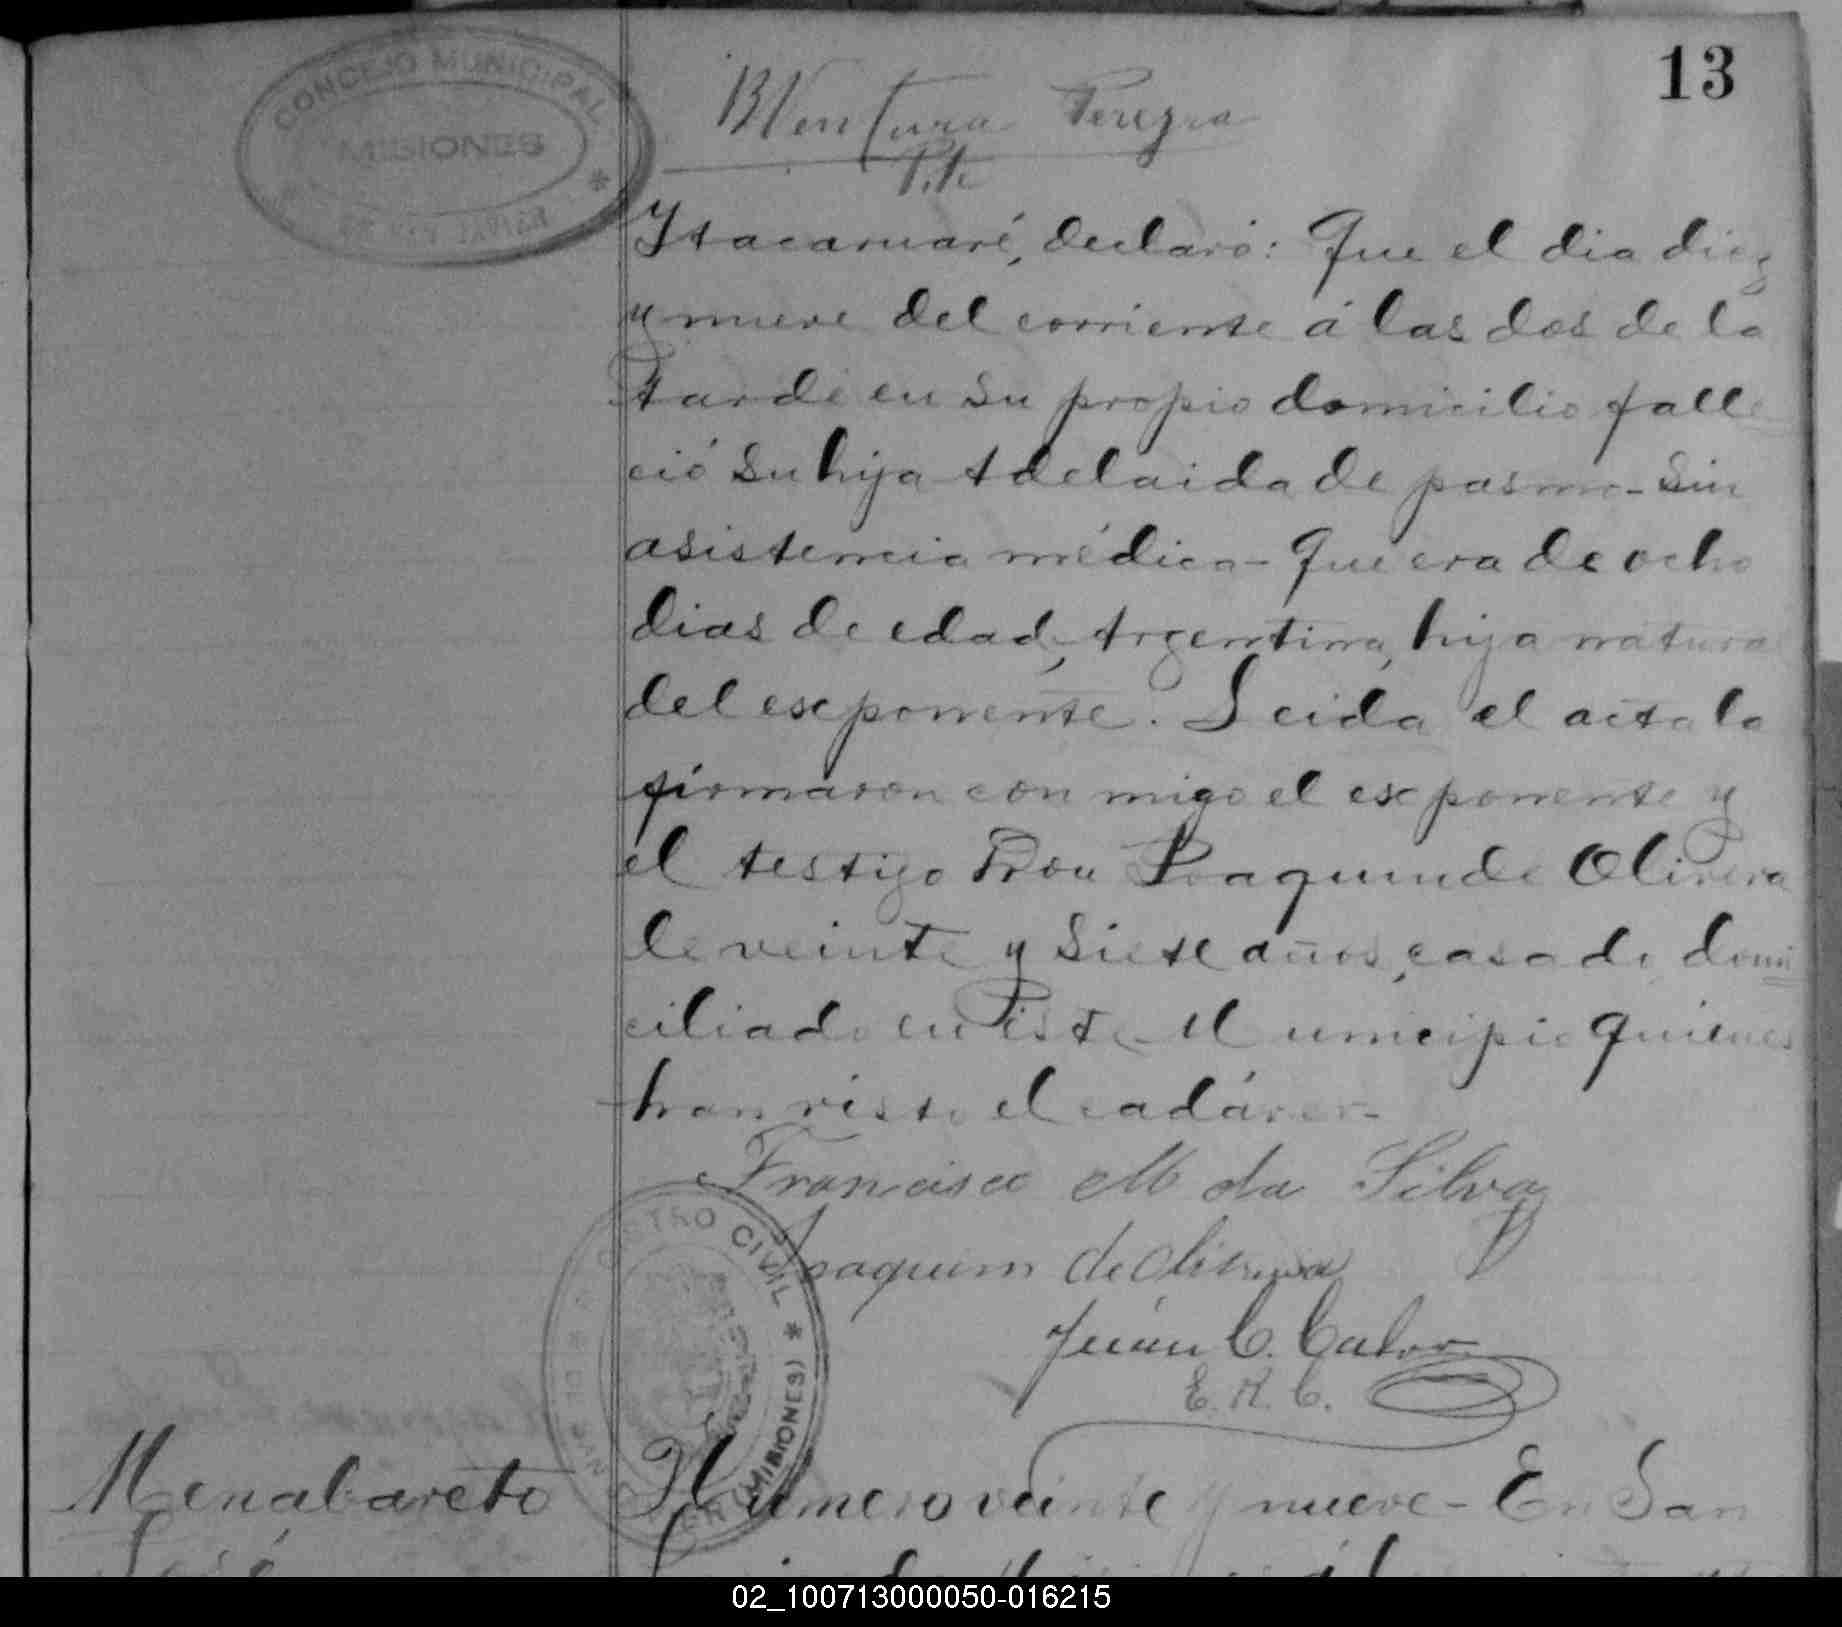 13
CONCEJO MUNICIPAL
MISIONES
BVentura Pereyra
P.te
Ytacaruaré, declaró: Que el dia diez
y nueve del corriente á las dos de la
tarde en su propio domicilio falle
ció su hija Adelaida de pasmo- sin
asistencia médica- Que era de ocho
dias de edad, Argentina, hija natural
del exponente. Leida el acta la
firmaron con migo el exponente y
el testigo Don Joaquin de Olivera
de veinte y siete años, casado, domi
ciliado en este Municipio quienes
han visto el cadáver-
Francisco M da Silva
Joaquim de Olivera
Juán C. Calvo
E. R. C.
REGISTRO CIVIL * (MISIONES)
Menabareto
José
Número veinte y nueve- En San
02_100713000050-016215